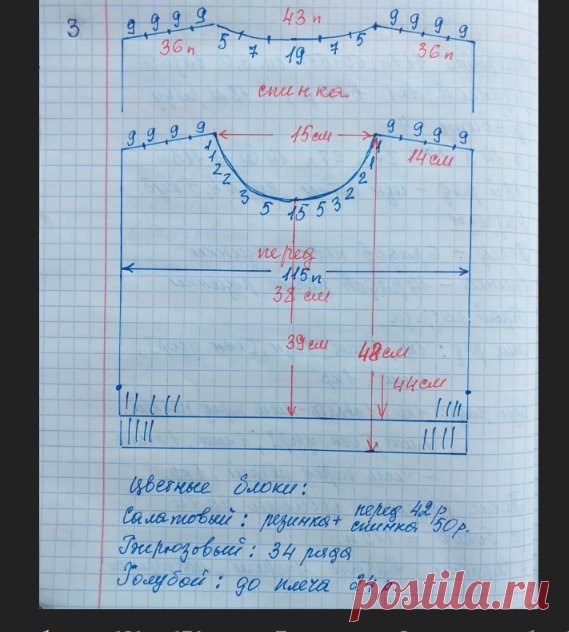 3
9 9 9 9 43 п 9 9 9 9
36 п 5 7 19 7 5 36 п
спинка
9 9 9 9 15 см 9 9 9 9
14 см
1 1 2 2 3 5 15 5 3 2 2 1 1
перед
115 п
38 см
39 см 48 см
44 см
Цветные блоки:
Салатовый: резинка + перед 42 р
спинка 50 р.
Бирюзовый: 34 ряда
Голубой: до плеча
postila.ru